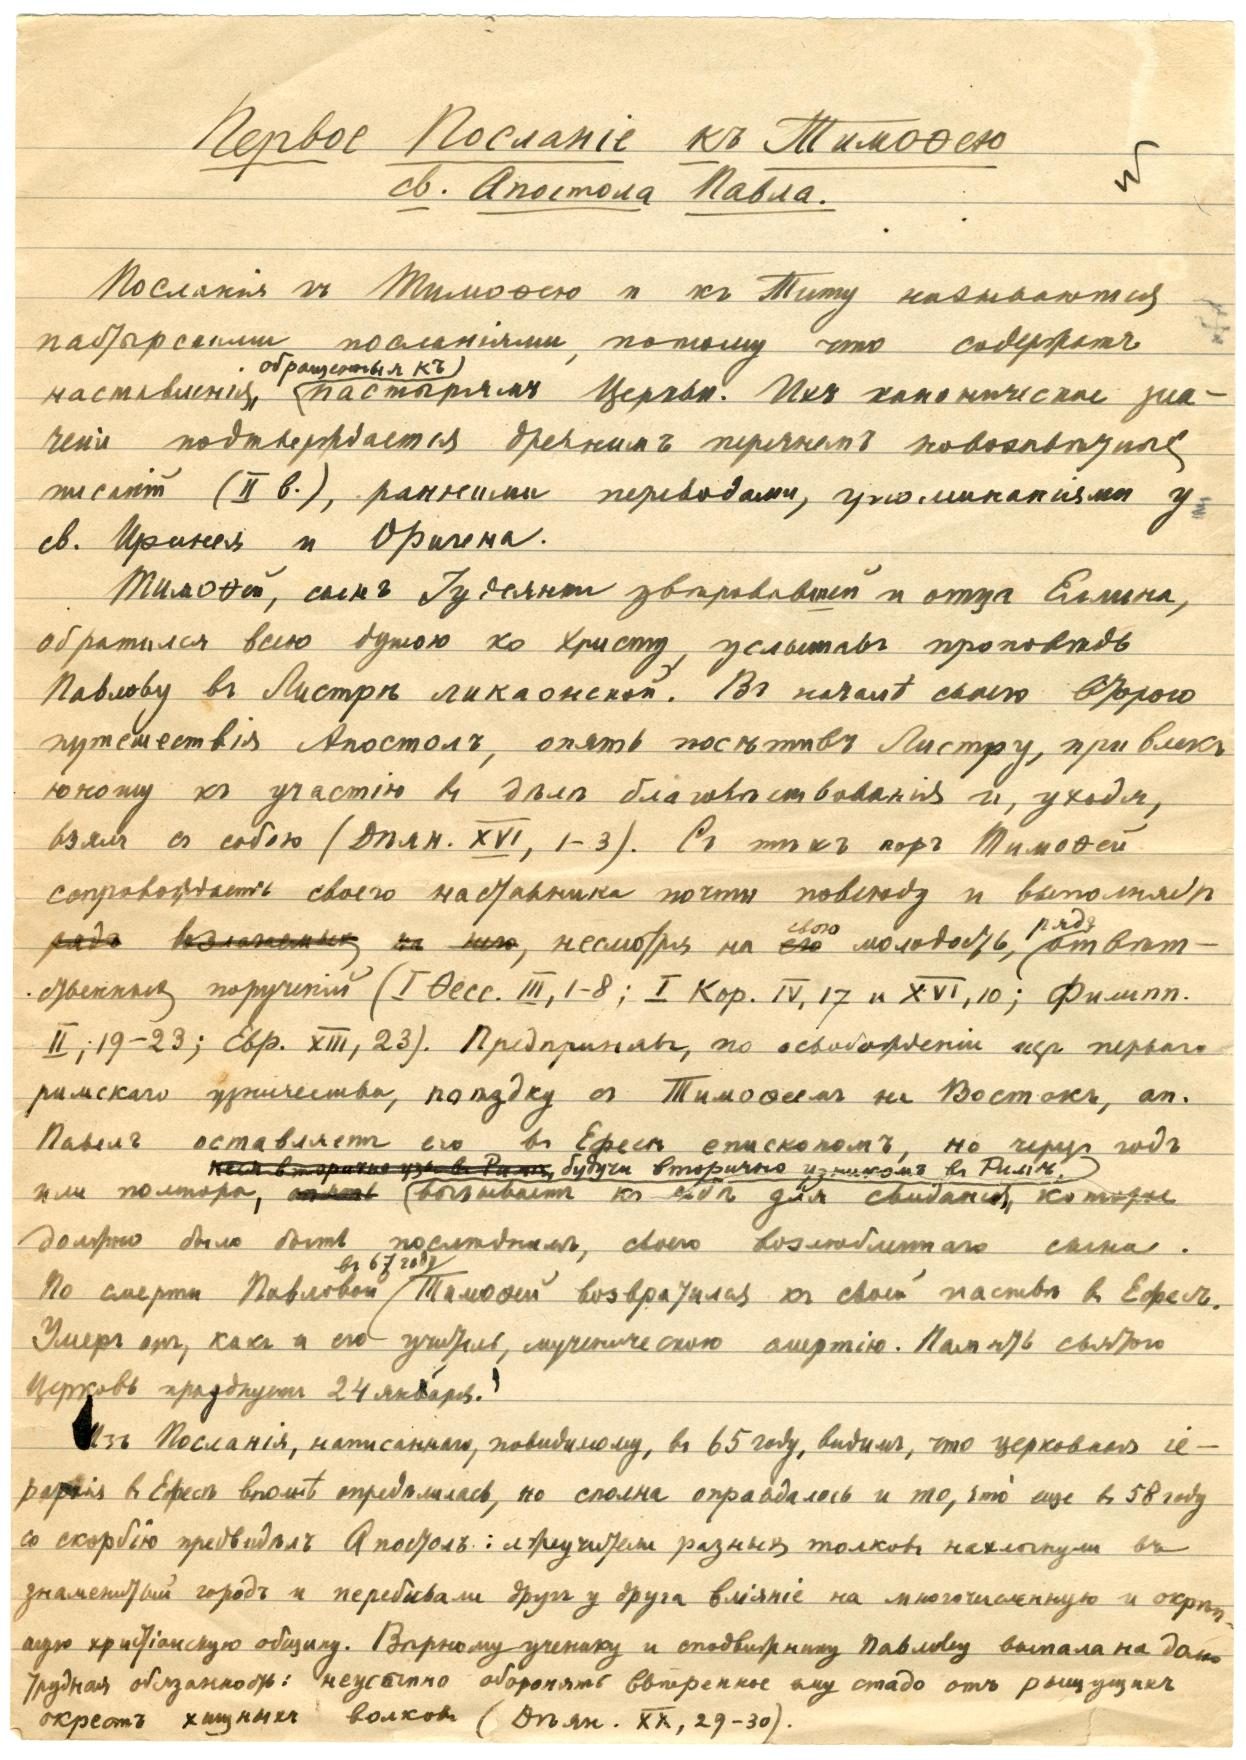 Первое Посланіе къ Тимоѳею
св. Апостола Павла.
Посланія къ Тимоѳею и къ Титу называются
пастырскими посланіями, потому что содержатъ
обращенныя къ
наставленія, пастырямъ Церкви. Ихъ каноническое зна-
ченіе подтверждается древнимъ перечнемъ новозавѣтныхъ
писаній (II в.), ранними переводами, упоминаніями у
св. Иринея и Оригена.
Тимоѳей, сынъ Іудеянки увѣровавшей и отца Еллина,
обратился всею душою ко Христу, услышавъ проповѣдь
Павлову въ Листрѣ ликаонской. Въ началѣ своего второго
путешествія Апостолъ, опять посѣтивъ Листру, привлекъ
юношу къ участію въ дѣлѣ благовѣствованія и, уходя,
взялъ съ собою (Дѣян. XVI, 1-3). Съ тѣхъ поръ Тимоѳей
сопровождаетъ своего наставника почти повсюду и выполняетъ
свою рядъ
рядъ возлагаемыхъ на него, несмотря на его молодость, отвѣт-
ственныхъ порученій (I Ѳесс. III, 1-8; I Кор. IV, 17 и XVI, 10; Филипп.
II, 19-23; Евр. XIII, 23). Предпринявъ, по освобожденіи изъ перваго
римскаго узничества, поѣздку съ Тимоѳеемъ на Востокъ, ап.
Павелъ оставляетъ его въ Ефесѣ епископомъ, но черезъ годъ
будучи вторично узникомъ въ Римѣ,
или полтора, опять вызываетъ къ себѣ для свиданія, которое
должно было быть послѣднимъ, своего возлюбленнаго сына.
въ 67 году
По смерти Павловой Тимоѳей возвратился къ своей паствѣ въ Ефесъ.
Умеръ онъ, какъ и его учитель, мученическою смертію. Память святого
Церковь празднуетъ 24 января.
Изъ Посланія, написаннаго, повидимому, въ 65 году, видимъ, что церковная іе-
рархія въ Ефесѣ вполнѣ опредѣлилась, но сполна оправдалось и то, что еще въ 58 году
со скорбію предвидѣлъ Апостолъ: лжеучители разныхъ толковъ нахлынули въ
знаменитый городъ и перебивали другъ у друга вліяніе на многочисленную и окрѣп-
шую христіанскую общину. Вѣрному ученику и сподвижнику Павлову выпала на долю
трудная обязанность: неусыпно оборонять ввѣренное ему стадо отъ рыщущихъ
окрестъ хищныхъ волковъ (Дѣян. XX, 29-30).